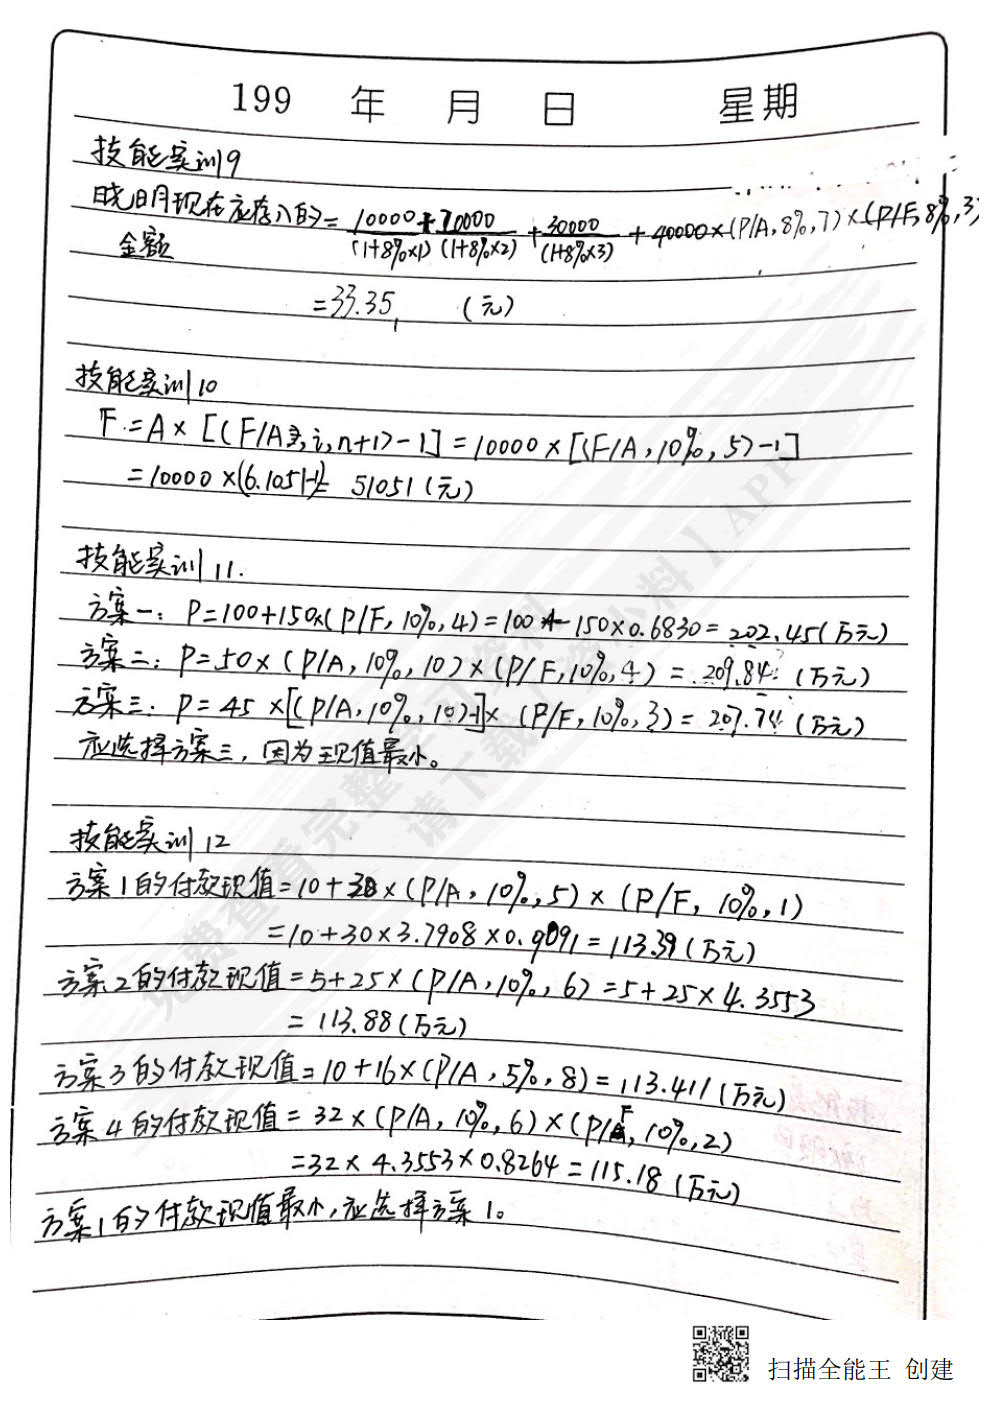 199 年 月 日 星期
技能实训9
晓明现在应存入的金额 = 10000/(1+8%×1) + 20000/(1+8%×2) + 30000/(1+8%×3) + 40000×(P/A,8%,7)×(P/F,8%,3)
=33.35, (元)
技能实训10
F=A×[(F/A,i,n+1)-1]=10000×[(F/A,10%,5)-1]
=10000×(6.1051-1)= 51051(元)
技能实训11.
方案一: P=100+150×(P/F,10%,4)=100+150×0.6830=202.45(万元)
方案二: P=50×(P/A,10%,10)×(P/F,10%,4)=209.84(万元)
方案三: P=45×[(P/A,10%,10)-1]×(P/F,10%,3)=207.74(万元)
应选择方案三,因为现值最小。
技能实训12
方案1的付款现值=10+30×(P/A,10%,5)×(P/F,10%,1)
=10+30×3.7908×0.9091=113.39(万元)
方案2的付款现值=5+25×(P/A,10%,6)=5+25×4.3553
=113.88(万元)
方案3的付款现值=10+16×(P/A,5%,8)=113.411(万元)
方案4的付款现值=32×(P/A,10%,6)×(P/F,10%,2)
=32×4.3553×0.8264=115.18(万元)
方案1的付款现值最小,应选择方案1。
免费查看完整学习资料
请下载【资小料】APP
扫描全能王 创建